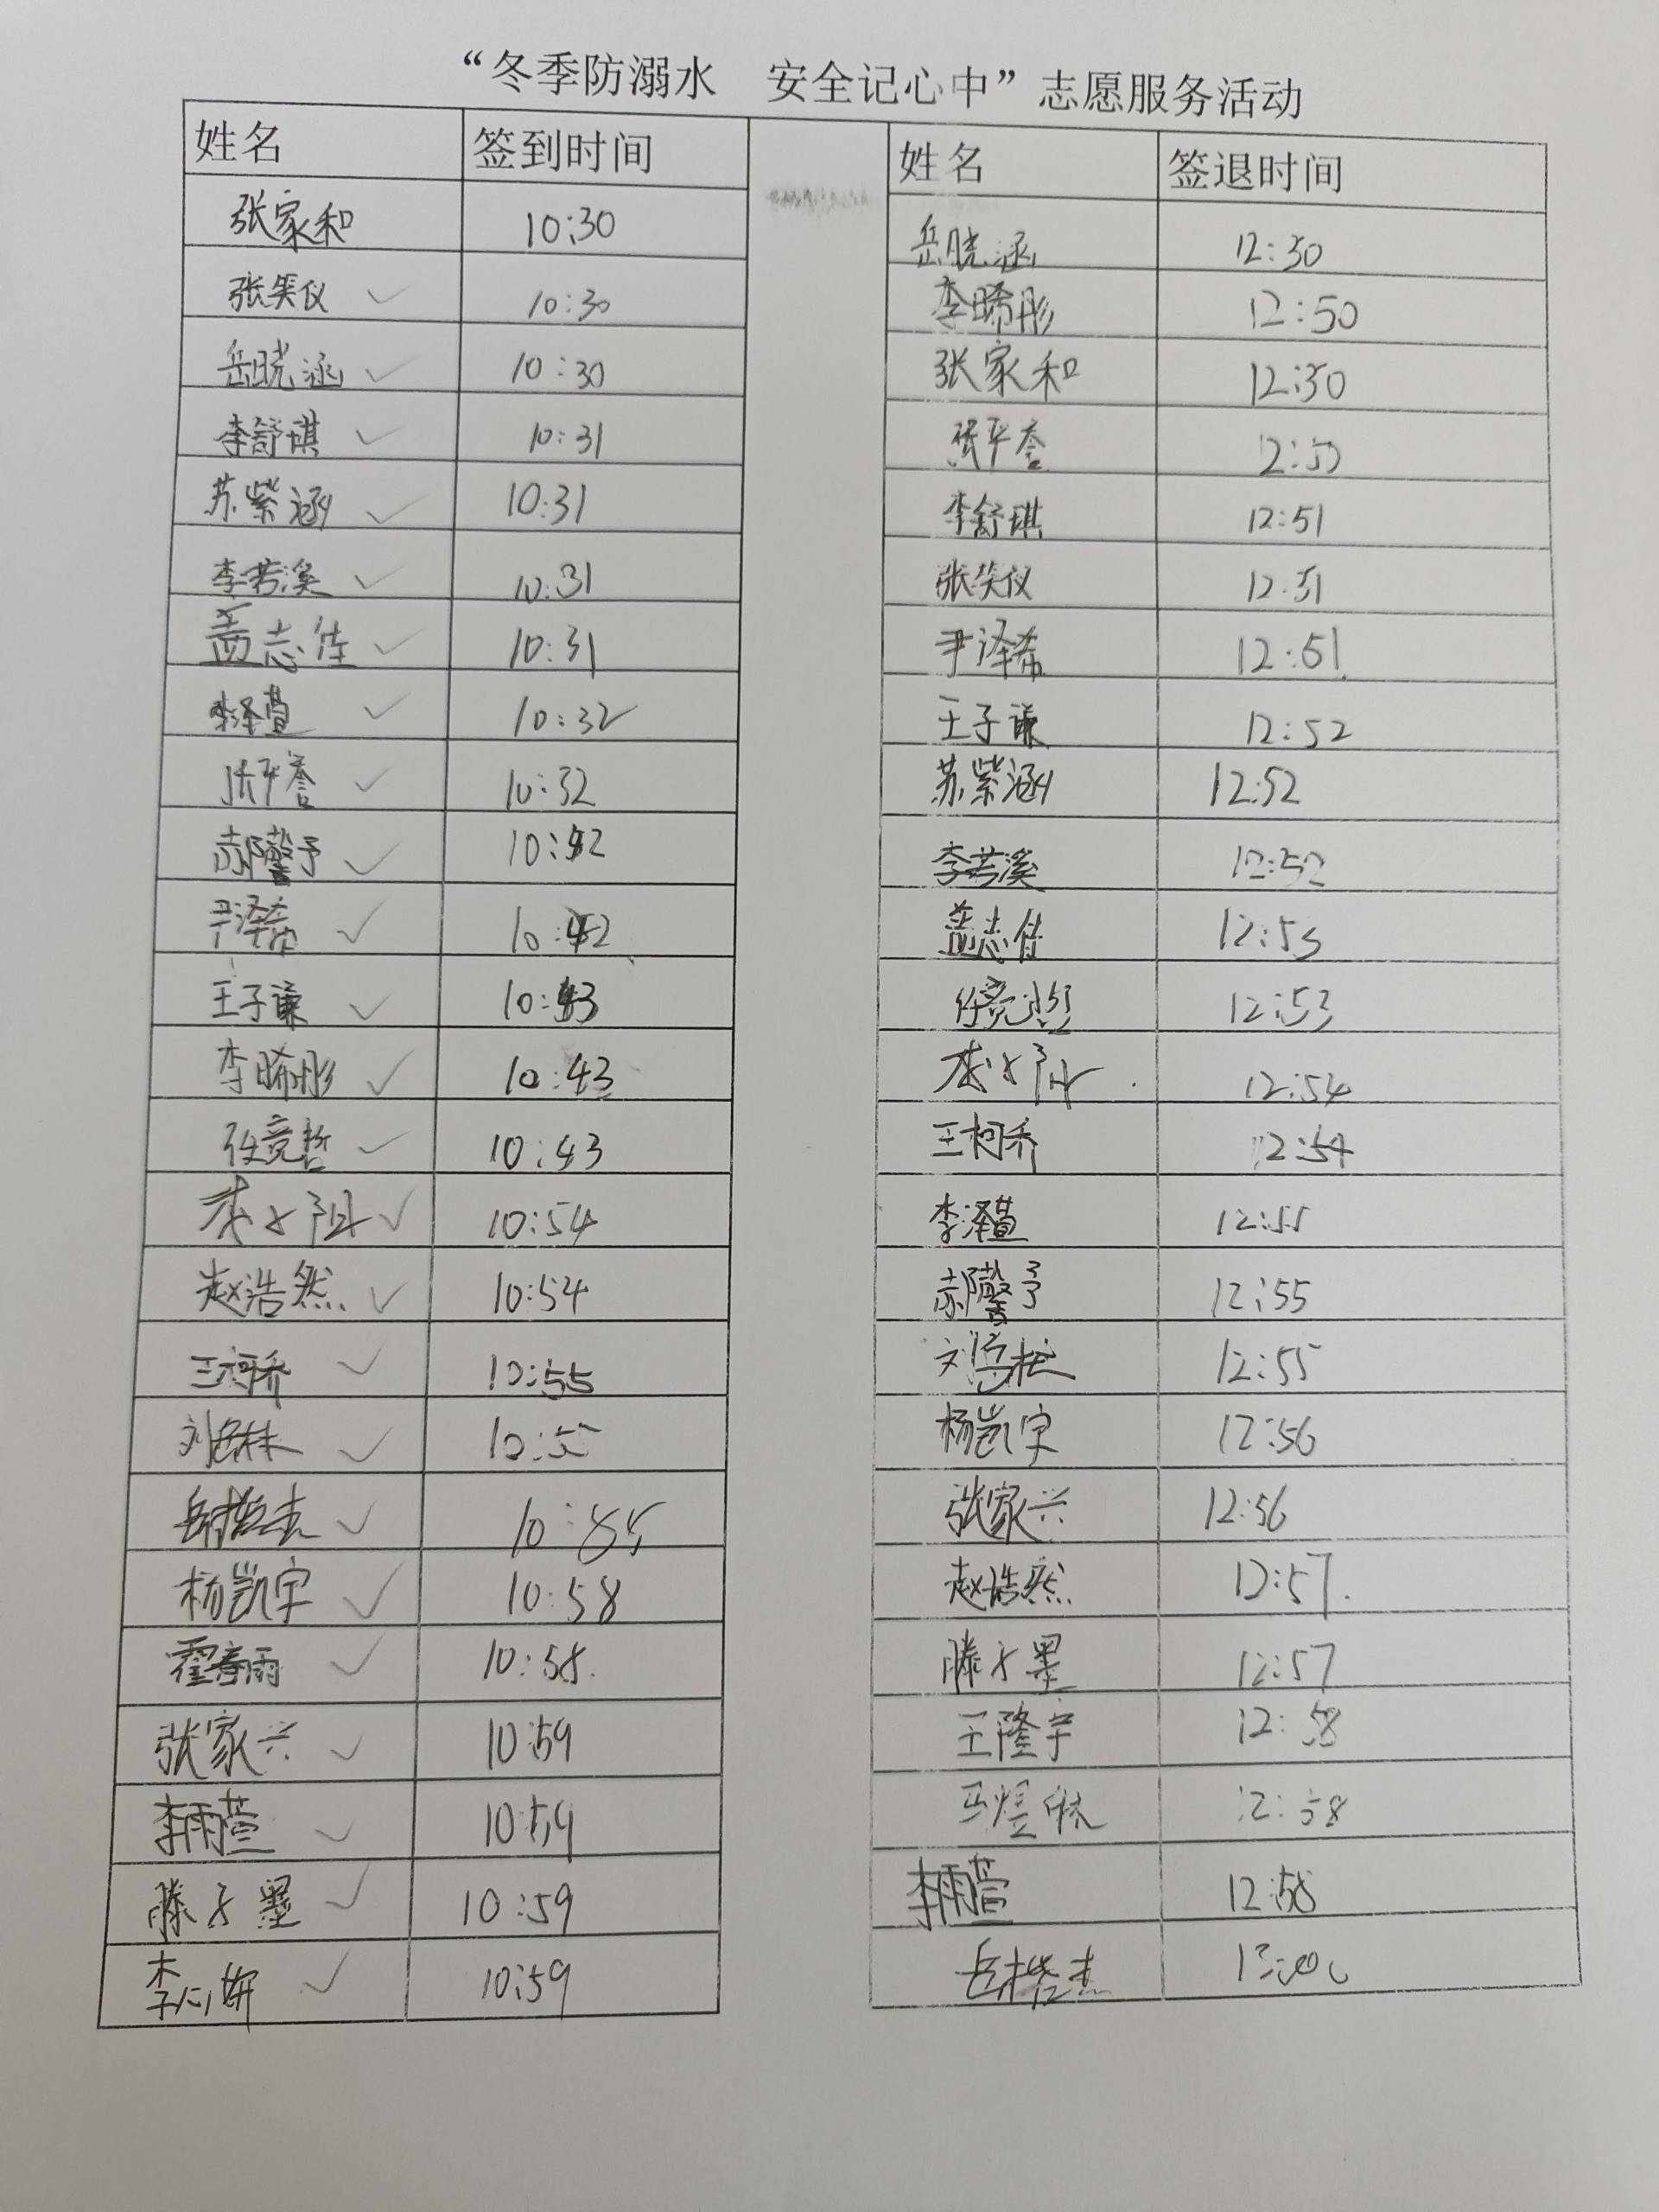 “冬季防溺水 安全记心中”志愿服务活动
姓名 签到时间 姓名 签退时间
张家和 10:30 岳晓涵 12:50
张笑仪 10:30 李晞彤 12:50
岳晓涵 10:30 张家和 12:50
李舒琪 10:31 张平誉 12:50
苏紫涵 10:31 李舒琪 12:51
李若溪 10:31 张笑仪 12:51
孟志佳 10:31 尹泽希 12:51
李泽萱 10:32 王子谦 12:52
张平誉 10:32 苏紫涵 12:52
郝馨予 10:42 李若溪 12:52
尹泽希 10:42 孟志佳 12:53
王子谦 10:43 12:53
李晞彤 10:43 12:54
任竞哲 10:43 王柯乔 12:54
10:54 李泽萱 12:55
赵浩然 10:54 郝馨予 12:55
王柯乔 10:55 12:55
10:55 杨凯宇 12:56
10:55 张家兴 12:56
杨凯宇 10:58 赵浩然 12:57
霍春雨 10:58 滕子墨 12:57
张家兴 10:59 王隆宇 12:58
李雨萱 10:59 12:58
滕子墨 10:59 李雨萱 12:58
李心妍 10:59 13:00